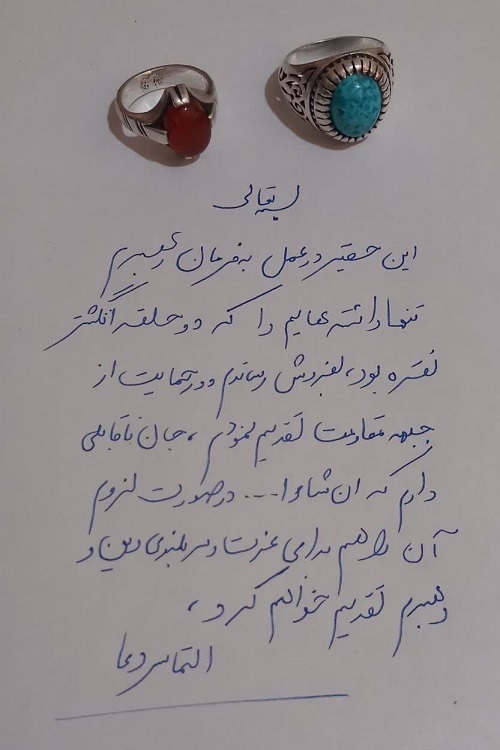 بسمه تعالی
این حقیر در عمل به فرمان رهبرم
تنها داشته هایم را که دو حلقه انگشتر
نقره بود، بفروش رساندم و در حمایت از
جبهه مقاومت تقدیم نمودم، جان ناقابلی
دارم که ان شاءا... در صورت لزوم
آن را هم برای عزت و سربلندی دین و
رهبرم تقدیم خواهم کرد،
التماس دعا